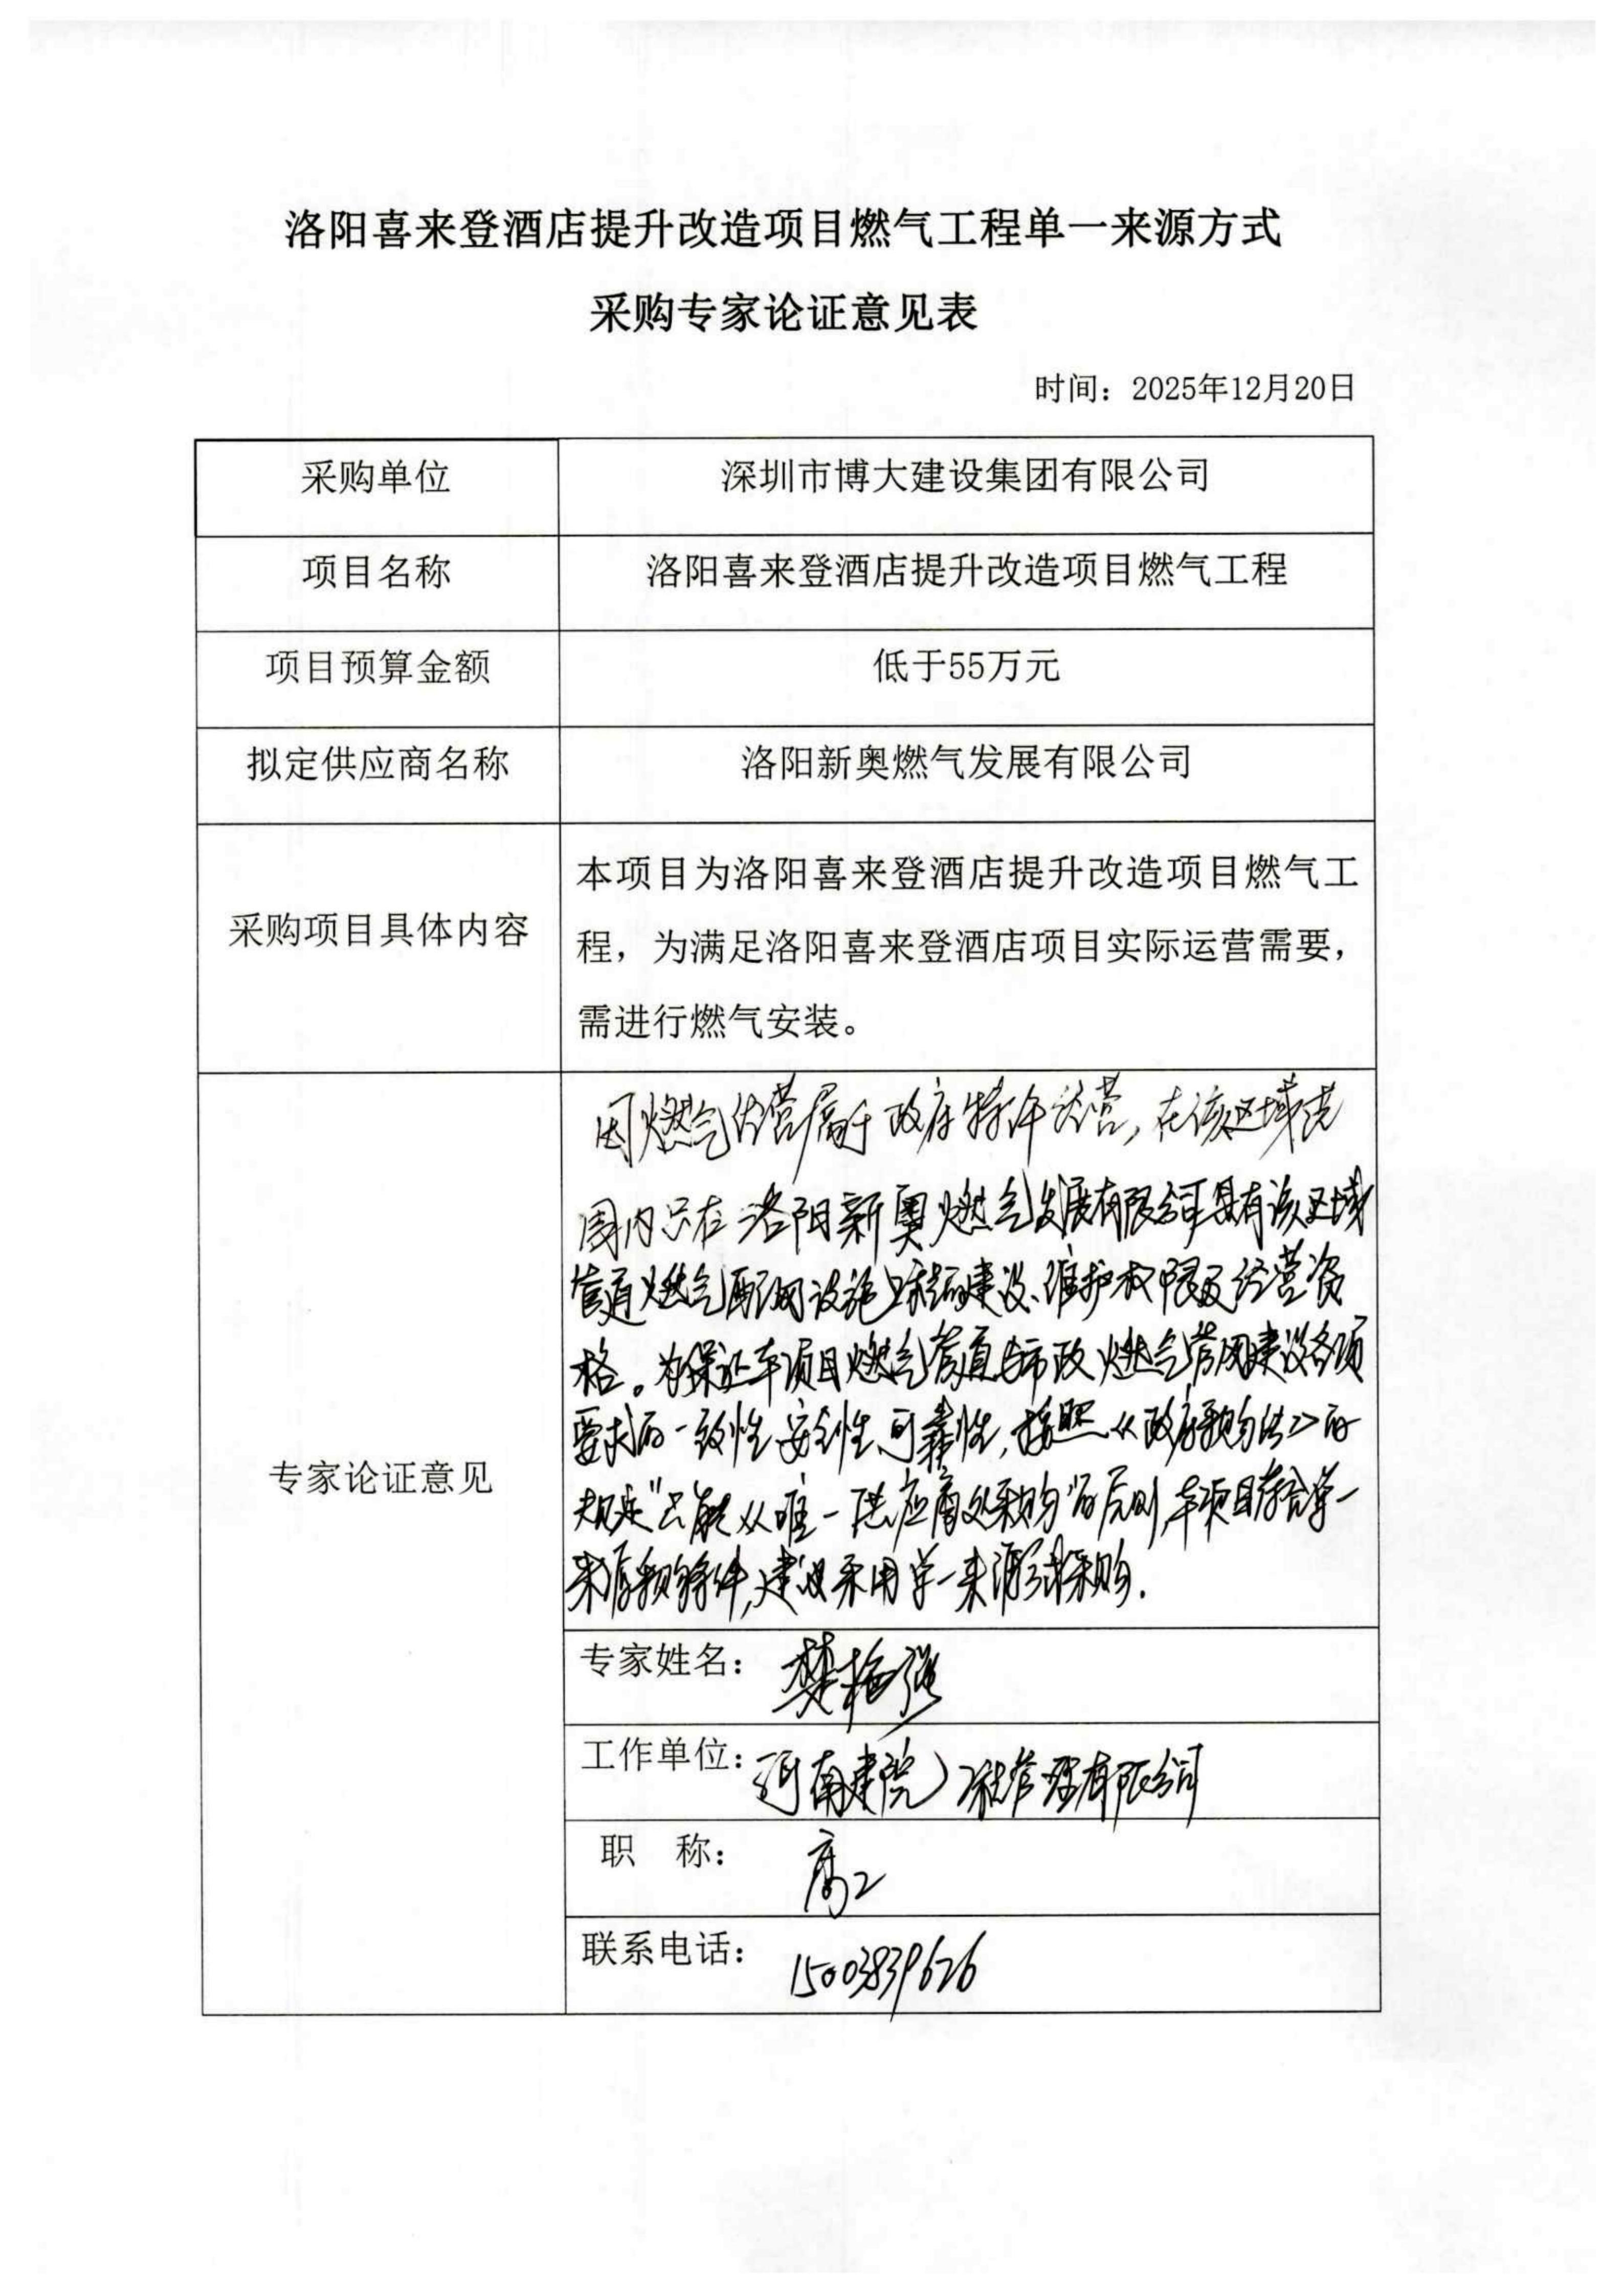 洛阳喜来登酒店提升改造项目燃气工程单一来源方式
采购专家论证意见表
时间：2025年12月20日
采购单位
深圳市博大建设集团有限公司
项目名称
洛阳喜来登酒店提升改造项目燃气工程
项目预算金额
低于55万元
拟定供应商名称
洛阳新奥燃气发展有限公司
采购项目具体内容
本项目为洛阳喜来登酒店提升改造项目燃气工
程，为满足洛阳喜来登酒店项目实际运营需要，
需进行燃气安装。
专家论证意见
因燃气经营属于政府特许经营，在该区域范
围内只有洛阳新奥燃气发展有限公司具有该区域
管道燃气配网设施建设、维护权限及经营资
格。为保证本项目燃气管道与市政燃气管网建设各项
要求的一致性、安全性、可靠性，按照《政府采购法》的
规定"只能从唯一供应商处采购"的原则，本项目符合单一
来源采购条件，建议采用单一来源方式采购.
专家姓名：
工作单位：河南建院工程管理有限公司
职 称：高工
联系电话：15003839626